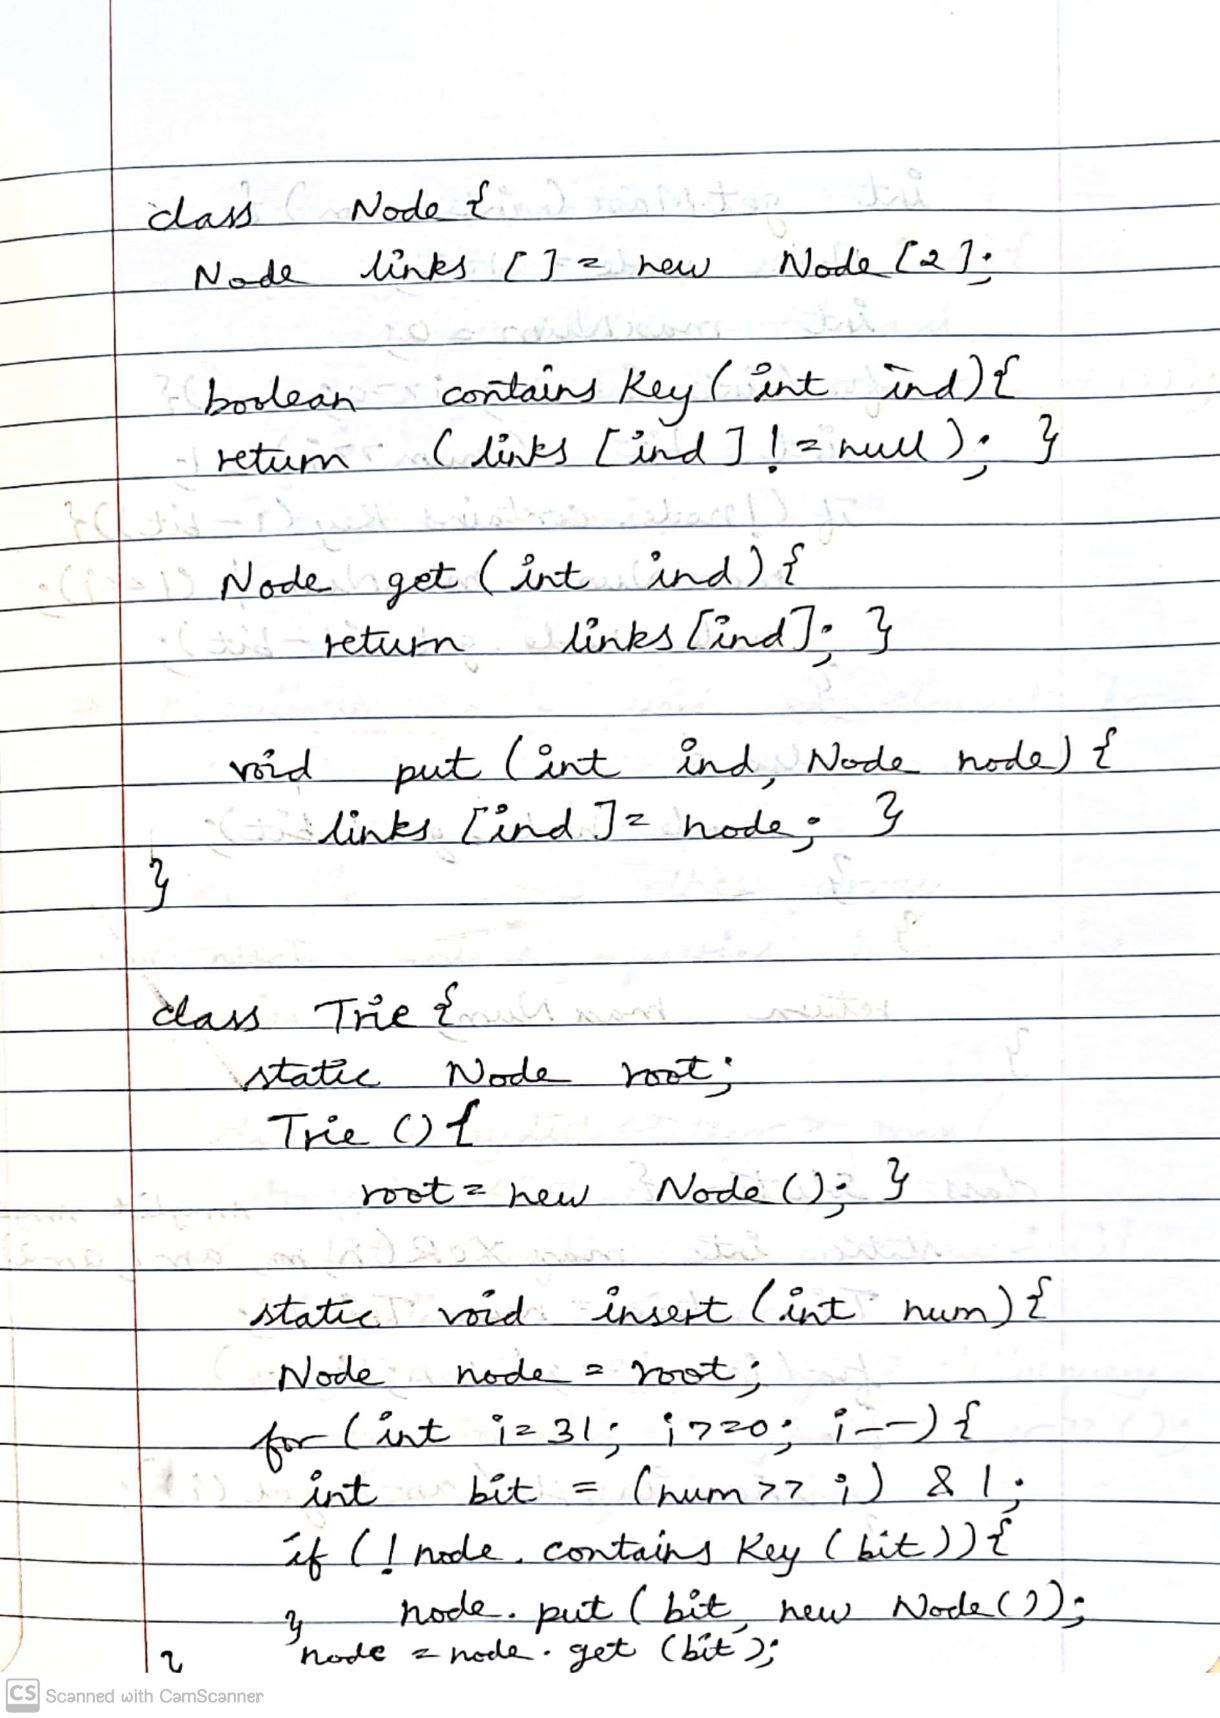 class Node {
Node links [] = new Node [2];
boolean contains Key (int ind) {
return (links [ind] != null); }
Node get (int ind) {
return links [ind]; }
void put (int ind, Node node) {
links [ind] = node; }
}
class Trie {
static Node root;
Trie () {
root = new Node (); }
static void insert (int num) {
Node node = root;
for (int i = 31; i >= 0; i--) {
int bit = (num >> i) & 1;
if (! node. contains Key (bit)) {
node. put (bit, new Node ());
}
node = node. get (bit);
}
CS Scanned with CamScanner